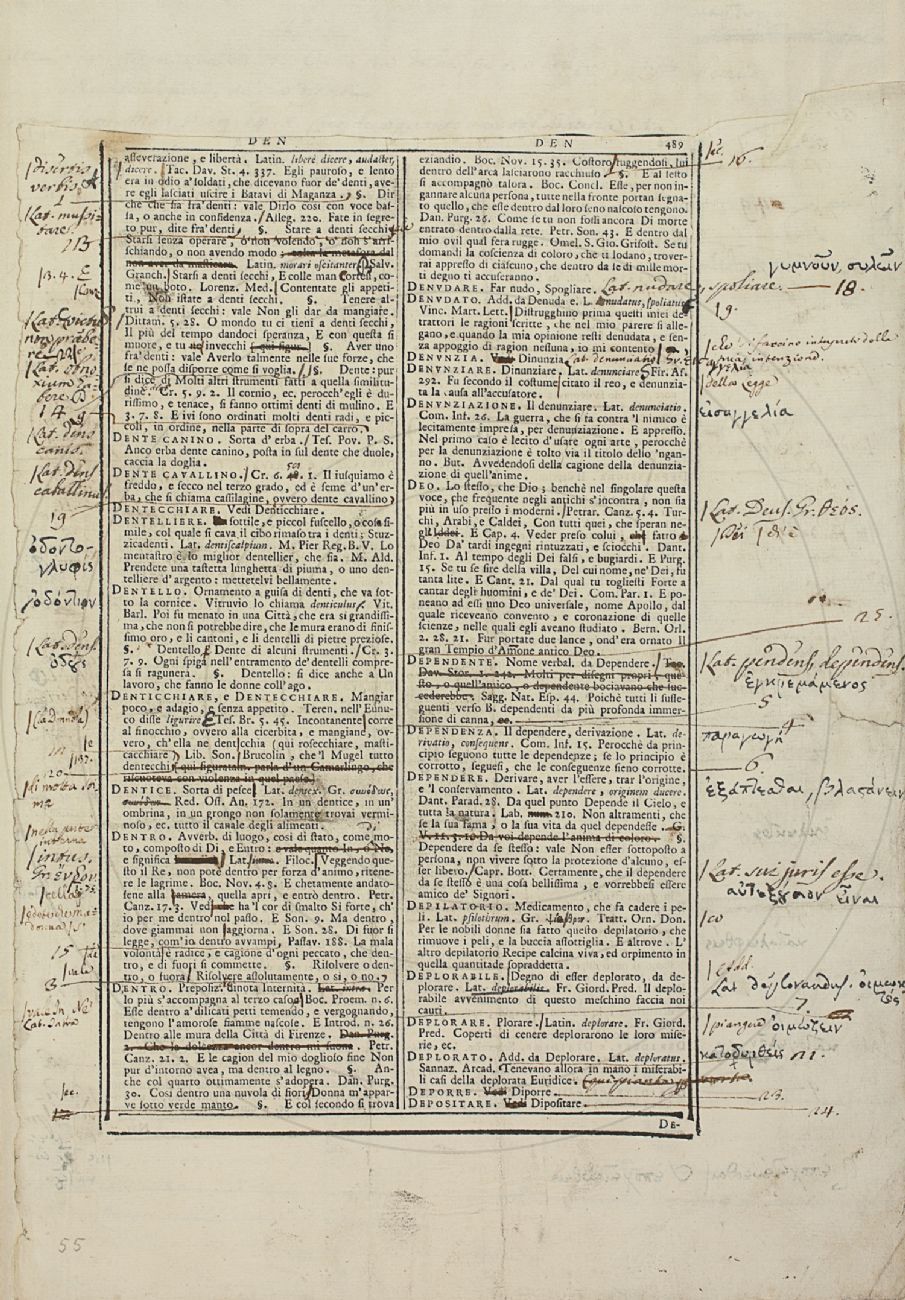 DEN
DEN 489
asseverazione, e libertà. Latin. liberè dicere, audacter
dicere. Tac. Dav. St. 4. 337. Egli pauroso, e lento
era in odio a'soldati, che dicevano fuor de' denti, ave-
re egli lasciati uscire i Batavi di Maganza. §. Dir
che che sia fra' denti: vale Dirlo così con voce bas-
sa, o anche in confidenza. Alleg. 220. Fate in segre-
to pur, dite fra'denti. §. Stare a denti secchi
Starsi senza operare, o non volendo, o non s'arri-
schiando, o non avendo modo
non aver da masticare. Latin. morari oscitanter. Salv.
Granch. Starsi a denti secchi, E colle man cortesi, co-
me un boto. Lorenz. Med. Contentate gli appeti-
ti, Non istate a denti secchi. §. Tenere al-
trui a denti secchi: vale Non gli dar da mangiare.
Dittam. 5. 28. O mondo tu ci tieni a denti secchi,
Il più del tempo dandoci speranza, E con questa si
muore, e tu invecchi §. Aver uno
fra'denti: vale Averlo talmente nelle sue forze, che
se ne possa disporre come si voglia. §. Dente: pur
si dice di Molti altri strumenti fatti a quella similitu-
dine. Cr. 5. 9. 2. Il cornio, ec. perocch'egli è du-
rissimo, e tenace, si fanno ottimi denti di mulino. E
3. 7. 8. E ivi sono ordinati molti denti radi, e pic-
coli, in ordine, nella parte di sopra del carro.
DENTE CANINO. Sorta d'erba. Tes. Pov. P. S.
Anco erba dente canino, posta in sul dente che duole,
caccia la doglia.
DENTE CAVALLINO. Cr. 6. 1. Il iusquiamo è
freddo, e secco nel terzo grado, ed è seme d'un'er-
ba, che si chiama cassilagine, ovvero dente cavallino
DENTECCHIARE. Vedi Denticchiare.
DENTELLIERE. sottile, e piccol fuscello, o cosa si-
mile, col quale si cava il cibo rimaso tra i denti; Stuz-
zicadenti. Lat. dentiscalpium. M. Pier Reg. B. V. Lo
mentastro è lo miglior dentellier, che sia. M. Ald.
Prendete una tastetta lunghetta di piuma, o uno den-
telliere d'argento: mettetelvi bellamente.
DENTELLO. Ornamento a guisa di denti, che va sot-
to la cornice. Vitruvio lo chiama denticulus. Vit.
Barl. Poi fu menato in una Città, che era sì grandissi-
ma, che non si potrebbe dire, che le mura erano di finis-
simo oro, e li cantoni, e li dentelli di pietre preziose.
§. Dentello. Dente di alcuni strumenti. Cr. 3.
7. 9. Ogni spiga nell'entramento de'dentelli compre-
sa si ragunera. §. Dentello: si dice anche a Un
lavoro, che fanno le donne coll'ago.
DENTICHIARE, e DENTECCHIARE. Mangiar
poco, e adagio, e senza appetito. Teren. nell'Eunu-
co disse ligurire. Tes. Br. 5. 45. Incontanente corre
al finocchio, ovvero alla cicerbita, e mangiane, ov-
vero, ch'ella ne dentecchia (qui rosecchiare, masti-
cacchiare) Lib. Son. Brucolin, che'l Mugel tutto
dentecchi (qui figuratam. parla d'un Camarlingo, che
riscuoteva con violenza in quel paese)
DENTICE. Sorta di pesce. Lat. dentex. Gr.
Red. Oss. An. 172. In un dentice, in un'
ombrina, in un grongo non solamente trovai vermi-
noso, ec. tutto il canale degli alimenti.
DENTRO. Avverb. di luogo, così di stato, come mo-
to, composto di Di, e Entro: e vale quanto In, o Ne,
e significa Lat. Filoc. Veggendo que-
sto il Re, non potè dentro per forza d'animo, ritene-
re le lagrime. Boc. Nov. 4. 8. E chetamente andato-
sene alla camera, quella aprì, e entrò dentro. Petr.
Canz. 17. 3. ha 'l cor di smalto Sì forte, ch'
io per me dentro nol passo. E Son. 9. Ma dentro,
dove giammai non s'aggiorna. E Son. 28. Di fuor si
legge, com'io dentro avvampi. Passav. 188. La mala
volontà è radice, e cagione d'ogni peccato, che den-
tro, e di fuori si commette. §. Risolvere o den-
tro, o fuora: Risolvere assolutamente, o sì, o no.
DENTRO. Preposiz. dinota Internità. Lat. intra. Per
lo più s'accompagna al terzo caso. Boc. Proem. n. 6.
Esse dentro a'dilicati petti temendo, e vergognando,
tengono l'amorose fiamme nascose. E Introd. n. 26.
Dentro alle mura della Città di Firenze. Dan. Purg.
2. Che la dolcezza ancor dentro mi suona. Petr.
Canz. 21. 2. E le cagion del mio doglioso fine Non
pur d'intorno avea, ma dentro al legno. §. An-
che col quarto ottimamente s'adopera. Dan. Purg.
30. Così dentro una nuvola di fiori Donna m'appar-
ve sotto verde manto. §. E col secondo si trova
eziandio. Boc. Nov. 15. 35. Costoro fuggendosi, lui
dentro dell'arca lasciarono racchiuso §. E al sesto
si accompagnò talora. Boc. Concl. Esse, per non in-
gannare alcuna persona, tutte nella fronte portan segna-
to quello, che esse dentro dal loro seno nascoso tengono.
Dan. Purg. 26. Come se tu non fossi ancora Di morte
entrato dentro dalla rete. Petr. Son. 43. E dentro dal
mio ovil qual fera rugge. Omel. S. Gio. Grisost. Se tu
domandi la coscienza di coloro, che ti lodano, trover-
rai appresso di ciascuno, che dentro da se di mille mor-
ti degno ti accuseranno.
DENUDARE. Far nudo, Spogliare. Lat. nudare, spoliare. 18.
DENUDATO. Add. da Denuda e. L. denudatus, spoliatus
Vinc. Mart. Lett. Distrugghino prima questi miei de-
trattori le ragioni scritte, che nel mio parere si alle-
gano, e quando la mia opinione resti denudata, e sen-
za appoggio di ragion nessuna, io mi contento
DENUNZIA. Dinunzia
DENUNZIARE. Dinunziare. Lat. denunciare. Fir. As.
292. Fu secondo il costume citato il reo, e denunzia-
ta la causa all'accusatore.
DENUNZIAZIONE. Il denunziare. Lat. denunciatio.
Com. Inf. 26. La guerra, che si fa contra 'l nimico è
lecitamente impresa, per denunziazione. E appresso.
Nel primo caso è lecito d'usare ogni arte, perocchè
per la denunziazione è tolto via il titolo dello 'ngan-
no. But. Avvedendosi della cagione della denunzia-
zione di quell'anime.
DEO. Lo stesso, che Dio; benchè nel singolare questa
voce, che frequente negli antichi s'incontra, non sia
più in uso presso i moderni. Petrar. Canz. 5. 4. Tur-
chi, Arabi, e Caldei, Con tutti quei, che speran ne-
gli Iddei. E Cap. 4. Veder preso colui, che fatto è
Deo Da' tardi ingegni rintuzzati, e sciocchi. Dant.
Inf. 1. Al tempo degli Dei falsi, e bugiardi. E Purg.
15. Se tu se sire della villa, Del cui nome, ne' Dei, fu
tanta lite. E Cant. 21. Dal qual tu togliesti Forte a
cantar degli huomini, e de' Dei. Com. Par. 1. E po-
neano ad essi uno Deo universale, nome Apollo, dal
quale ricevano convento, e coronazione di quelle
scienze, nelle quali egli aveano studiato. Bern. Orl.
2. 28. 21. Fur portate due lance, ond'era ornato Il
gran Tempio d'Amone antico Deo.
DEPENDENTE. Nome verbal. da Dependere. Tac.
Dav. Stor. 1. 242. Molti per disegni propri, que-
sto, o quell'amico, o dependente bociavano che suc-
cederebbe. Sagg. Nat. Esp. 44. Poichè tutti li susse-
guenti verso B. dependenti da più profonda immer-
sione di canna, ec.
DEPENDENZA. Il dependere, derivazione. Lat. de-
rivatio, consequens. Com. Inf. 15. Perocchè da prin-
cipio seguono tutte le dependenze; se lo principio è
corrotto, seguesi, che le conseguenze sieno corrotte.
DEPENDERE. Derivare, aver l'essere, trar l'origine,
e 'l conservamento. Lat. dependere, originem ducere.
Dant. Parad. 28. Da quel punto Depende il Cielo, e
tutta la natura. Lab. num. 210. Non altramenti, che
se la sua fama, o la sua vita da quel dependesse. G.
V. 11. 3. 10 Da voi depende l'anima di coloro. §.
Dependere da se stesso: vale Non esser sottoposto a
persona, non vivere sotto la protezione d'alcuno, es-
ser libero. Capr. Bott. Certamente, che il dependere
da se stesso è una cosa bellissima, e vorrebbesi essere
amico de' Signori.
DEPILATORIO. Medicamento, che fa cadere i pe-
li. Lat. psilothrum. Gr. Tratt. Orn. Don.
Per le nobili donne sia fatto questo depilatorio, che
rimuove i peli, e la buccia assottiglia. E altrove. L'
altro depilatorio Recipe calcina viva, ed orpimento in
quella quantitade sopraddetta.
DEPLORABILE. Degno di esser deplorato, da de-
plorare. Lat. deplorabilis. Fr. Giord. Pred. Il deplo-
rabile avvenimento di questo meschino faccia noi
cauti.
DEPLORARE. Plorare. Latin. deplorare. Fr. Giord.
Pred. Coperti di cenere deplorarono le loro mise-
rie, ec.
DEPLORATO. Add. da Deplorare. Lat. deploratus.
Sannaz. Arcad. Tenevano allora in mano i miserabi-
li casi della deplorata Euridice.
DEPORRE. Vedi Diporre. 23.
DEPOSITARE. Vedi Dipositare. 24.
DE-
Lat. dens
caninus.
Lat. dens
caballinus
19
ὀδοντο-
γλυφίς
ὀδόντιον
Lat. dens.
di molta stima
intus.
15
16.
γυμνοῦν, συλεῖν
19.
della legge
εἰσαγγελία
Lat. Deus. Gr. θεός.
25.
Lat. pendens, dependens.
5
παραγωγή
6.
Lat. sui juris esse.
αὐτεξούσιον εἶναι
7.
οἰμώζειν
21.
55